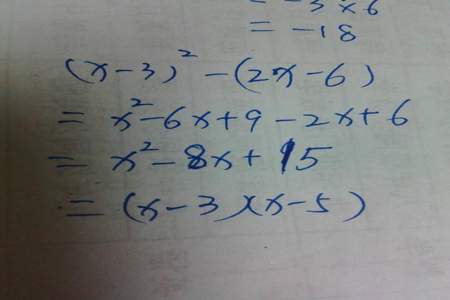 = -3 × 6
= -18
(x-3)² - (2x-6)
= x² - 6x + 9 - 2x + 6
= x² - 8x + 15
= (x-3)(x-5)